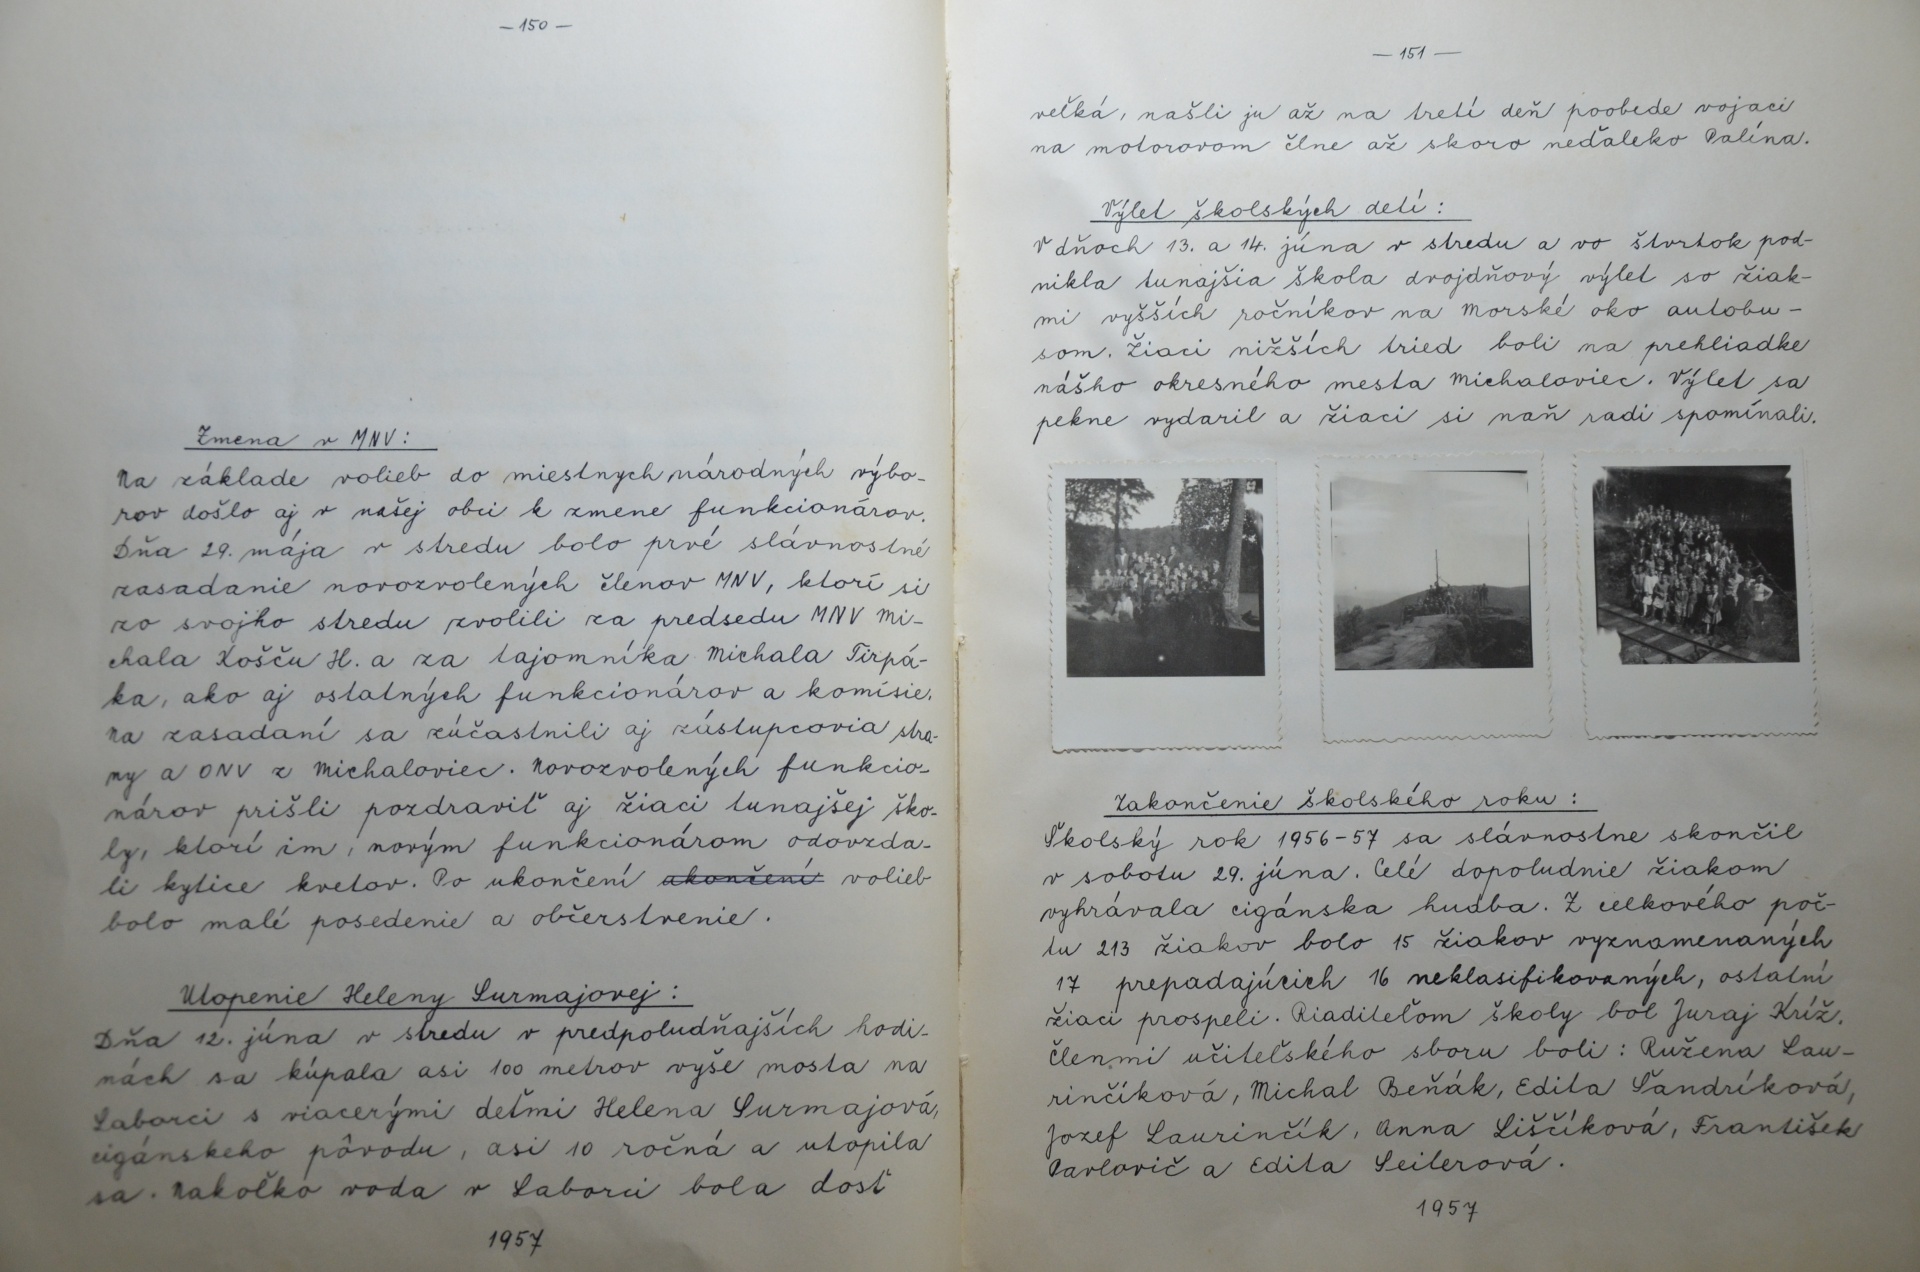 — 150 —
Zmena v MNV:
Na základe volieb do miestnych národných výbo-
rov došlo aj v našej obci k zmene funkcionárov.
Dňa 29. mája v stredu bolo prvé slávnostné
zasadanie novozvolených členov MNV, ktorí si
zo svojho stredu zvolili za predsedu MNV Mi-
chala Košču H. a za tajomníka Michala Tirpá-
ka, ako aj ostatných funkcionárov a komisie.
Na zasadaní sa zúčastnili aj zástupcovia stra-
ny a ONV z Michaloviec. Novozvolených funkcio-
nárov prišli pozdraviť aj žiaci tunajšej ško-
ly, ktorí im, novým funkcionárom odovzda-
li kytice kvetov. Po ukončení ukončení volieb
bolo malé posedenie a občerstvenie.
Utopenie Heleny Surmajovej:
Dňa 12. júna v stredu v predpoludňajších hodi-
nách sa kúpala asi 100 metrov vyše mosta na
Laborci s viacerými deťmi Helena Surmajová,
cigánskeho pôvodu, asi 10 ročná a utopila
sa. Nakoľko voda v Laborci bola dosť
1957
— 151 —
veľká, našli ju až na tretí deň poobede vojaci
na motorovom člne až skoro neďaleko Palína.
Výlet školských detí:
V dňoch 13. a 14. júna v stredu a vo štvrtok pod-
nikla tunajšia škola dvojdňový výlet so žiak-
mi vyšších ročníkov na Morské oko autobu-
som. Žiaci nižších tried boli na prehliadke
nášho okresného mesta Michaloviec. Výlet sa
pekne vydaril a žiaci si naň radi spomínali.
Zakončenie školského roku:
Školský rok 1956-57 sa slávnostne skončil
v sobotu 29. júna. Celé dopoludnie žiakom
vyhrávala cigánska hudba. Z celkového poč-
tu 213 žiakov bolo 15 žiakov vyznamenaných
17 prepadajúcich 16 neklasifikovaných, ostatní
žiaci prospeli. Riaditeľom školy bol Juraj Kríž.
Členmi učiteľského sboru boli: Ružena Lau-
rinčíková, Michal Beňák, Edita Šandríková,
Jozef Laurinčík, Anna Liščíková, František
Pavlovič a Edita Seilerová.
1957